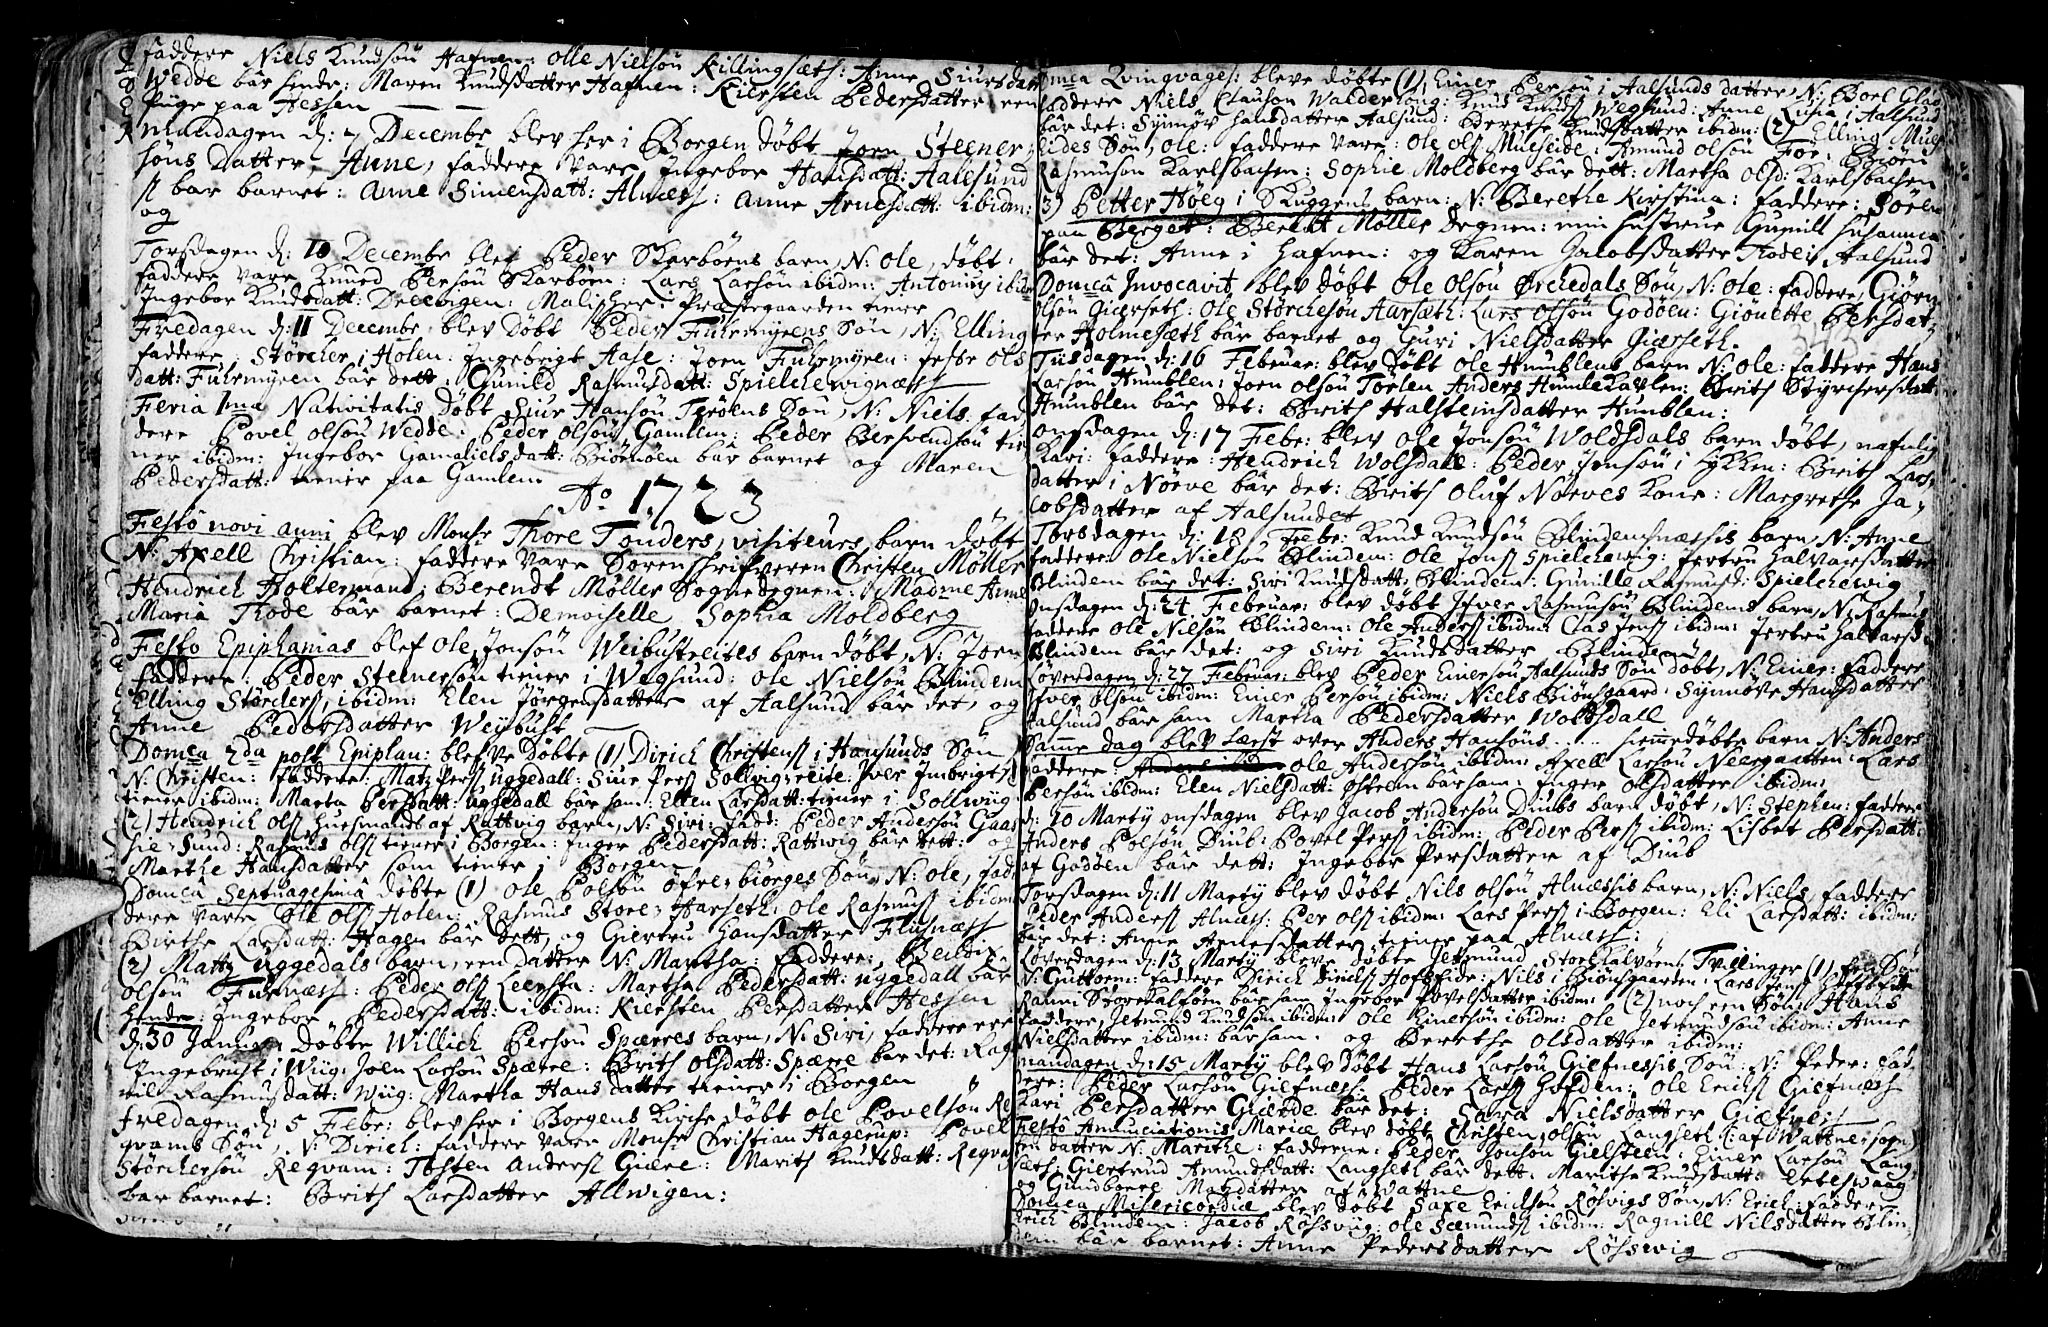 faddere Niels Knudsøn Hafnen: Olle Nielsøn Killingsæth: Anne Siursdatt
Wedde bär hende: Maren Knudsdatter Hafnen: Kiersten Pedersdatter een
Pige paa Hessen
Mandagen d: 7 Decembr blev her i Borgen døbt Jørn Steener
søns Datter, Anne, faddere vare Ingebor Hansdatt: Aalesund
bar barnet: Anne Simensdatt: Alnæss: Anne Arnesdatt: ibidm:
og
Torsdagen d: 10 Decembr blef Peder Skarbøens barn, N: Ole, døbt:
faddere vare Knud Persøn Skarbøen: Lars Larsøn ibidm: Antonny ibidm
Ingebor Knudsdatt: i Præstegaarden tiener
Fredagen d: 11 Decembr, blev døbt Peder Fuhrmyrens Søn, N: Elling
faddere, Størcher i Holen: Ingebrigt Aase: Joen Fuhrmyren: Ols
datt: Fuhrmyren bär dett: Gunild Rasmusdatt: Spielchewignæss
Feria 1ma Nativitatis døbt Siur Hansøn Terøens Søn, N: Niels, fad
dere Povel Olsøn Wedde: Peder Olsøn Gamlem: Peder Bersvendsøn tie
ner ibidm: Ingebor Gamalielsdatt: Biørnøen bär barnet og Maren
Pedersdatt: tiener paa Gamlem
Ao 1723
Festo novi anni blev Monsr Thore Tønders, visiteurs, barn døbt
N: Axell Christian: faddere vare Sorenschrifveren Christen Møller
Hendrich Holtermand: Berendt Møller Sognedegnen: Madme Anne
Maria Thode bär barnet: Demoiselle Sophia Moldberg
Festo Epiphanias blef Ole Jonsøn Weibustreites barn døbt, N: Joen
faddere: Peder Steenersøn tiener i Wegsund: Ole Nielsøn Blindem
Elling Størcherss, ibidm: Elen Jørgensdatter af Aalsund bär det, og
Anne Pedersdatter Weybust
Domca 2da post Epiphan: blefve døbte (1) Dirich Christenss i Hansunds Søn
N: Christen: faddere: Matz Perss Uggedall: Siur Perss Sollvigsreite: Iver Imbrigtss
tiener ibidm: Marta Persdatt: Uggedall bär ham: Ellen Larsdatt: tiener i Sollwiig
(2) Hendrich Olss huusmands af Rattvig barn, N: Siri: fadd: Peder Andersøn Gaas
Sund: Rasmus Olss tiener i Borgen: Inger Pedersdatt: Rattwig bär dett: og
Marthe Hansdatter som tiener i Borgen
Domca Septuagesimæ døbte (1) Ole Polsøn øfrebiørges Søn, N: Ole, fad
dere vare Ole Olss Holen: Rasmus Store Harseth: Ole Rasmuss ibidm
Birthe Larsdatt: Hagen bär dett, og Giertru Hansdatter Flusnæss
(2) Mattz Uggedals barn, een datter N: Martha: faddere: Bendix
Olsøn Furnæss: Peder Olss Leersta: Martha Pedersdatt: Uggedall bär
hende: Ingebor Pedersdatt: ibidm: Kiersten Persdatter Hessen
d: 30 Januar døbte Willich Persøn Spærres barn, N: Siri, faddere ere
Ingebricht i Wiig: Joen Larsøn Spærre: Brith Olsdatt: Spærre bar det: Rag
nil Rasmusdatt: Wiig: Martha Hansdatter tiener i Borgen
fredagen d: 5 Febr: blev her i Borgens Kirche døbt Ole Povelsøn Re
gvams Søn, N: Dirich: faddere vare Monsr Christian Hagerup: Povel
Størchersøn Reqvam: Tosten Anderss Giære: Marith Knudsdatt: Reqvam
bar barnet: Brith Larsdatter Allwigen:
Domca Qvinqvages: bleve døbte (1) Einer Persøn i Aalsunds datter, N: Boel
faddere Niels Clauson Walderhoug: Knud Knuds Wegsund: Anne Lusia i Aalsund
bär det: Synnøv Hansdatter Aalsund: Berethe Knudsdatter ibidm: (2) Elling Mul
seides Søn, Ole: faddere vare: Ole Olss Mulseide: Amund Olsøn Foe: Biørn
Rasmusøn Karlsbachen: Sophie Moldberg bär dett: Martha Olsd: Karlsbachen
3) Petter Høeg i Skuggens barn: N: Berethe Kirstina: faddere: Søren
paa Berget: Berendt Møller degnen: min hustrue Gunill Susanna
bär det: Anne i Hafnen: og Karen Jacobsdatter Thode i Aalsund
Domcâ Invocavit blev døbt Ole Olsøn Ørchedals Søn, N: Ole: faddere, Giørn
Olsøn Giærseth: Ole Størchesøn Aarsæth: Lars Olsøn Godøen: Giønette Persdat
ter Holmesæth bär barnet og Guri Nielsdatter Giærseth.
343
Tiisdagen d: 16 Februar: blev døbt Ole Humblens barn N: Ole: faddere Hans
Larsøn Humblen: Joen Olsøn Toelen Anders Humlekaxlen: Brith Styrchersdatt:
Humblen bär det: Brith Halsteinsdatter Humblen:
Onsdagen d: 17 Febr: blev Ole Jonsøn Woldsdals barn døbt, nafnlig
Kari: faddere: Hendrich Wolsdall: Peder Jonsøn i Hykken: Brith Lars
datter i Nørve bär det: Brith Oluf Nørves Kone: Margrethe Ja,
cobsdatter af Aalsundet
Torsdagen d: 18 Febr: Knud Knudsøn Blindemsnæssis barn, N: Anne
faddere Ole Nielsøn Blindem: Ole Jonss Spielchewig: Jertru Halvarsdatter
Blindem bär det: Siri Knudsdatt: Blindem: Gunille Rasmusd: Spielchewig
Onsdagen d: 24 Februar: blev døbt Ifver Rasmusøn Blindems barn, N: Rasmus
faddere Ole Nilsøn Blindem: Ole Anderss ibidm: Clas Jenss ibidm: Jertru Halvarsd:
Blindem bär det: og Siri Knudsdatter Blindem
Løverdagen d: 27 Februar: blev Peder Einersøn Aalsunds Søn døbt, N: Einer: faddere
Ifver Olsøn ibidm: Einer Persøn ibidm: Niels Biønsgaard: Synnøve Hansdatter
Aalsund bär ham Martha Pedersdatter Woldsdall
Samme dag blev læst over Anders Hansøns ..... hiemmedøbte barn N: Anders
faddere: Ole Andersøn ibidm: Axell Larsøn Neergaarten: Lars
Persøn ibidm: Elen Nielsdatt: Østrem bär ham: Inger Olsdatter ibidm:
d: 10 Marty onsdagen blev Jacob Andersøn Diubs barn døbt, N: Stephen: faddere
Anders Polsøn Diub: Povel Perss ibidm: Peder Perss ibidm: Lisbet Persdatt:
af Godøen bär dett: Ingebor Persdatter af Diub
Torsdagen d: 11 Marty blev døbt Nils Olsøn Alnæssis barn, N: Niels, faddere
Peder Anderss Alnæss: Per Olss ibidm: Lars Perss i Borgen: Eli Larsdatt: ibidm:
bär det: Anne Arnesdatter tiener paa Alnæss:
Løverdagen d: 13 Marty bleve døbte Jetmund Storkalvøens Tvillinger (1) Een Søn
N: Guttorm: faddere Dirich Dirichs Hofshide: Nils i Biønsgaarden: Lars Jenss
Rauni Storekalføen bär ham Ingebor Povelsdatter ibidm: (2) noch een Søn: Hans
faddere, Jetmund Knudsøn ibidm: Ole Einersøn ibidm: Ole Jetmundsøn ibidm: Anne
Nielsdatter ibidm: bär ham: og Berethe Olsdatter ibidm:
Mandagen d: 15 Marty blev døbt Hans Larsøn Giefnessis Søn: N: Peder: Fad
dere: Peder Larsøn Giefnæss: Peder Larss Hofden: Ole Erichss Giefnæss
Kari Persdatter Giærde bär det: Sara Nielsdatter
Festo Annunciationis Mariæ blev døbt Christen Olsøn Langseth af Wattnesogn
een datter N: Marithe: fadderne: Peder Jonsøn Gielsteen: Einer Larsøn Lang
sæth: Giertrud Amundsdatt: Langseth bär dett: Marithe Knudsdatt:
og Gundborre Matzdatter af Wattne
Domca Misericordiæ blev døbt Saxe Erichsøn Røsvigs Søn, N: Erich: faddere
Erich Blindem: Jacob Røsswiig: Ole Sæmundss ibidm: Ragnill Nilsdatter Blin,
dem bär barnet: Anne Pedersdatter Røsswig